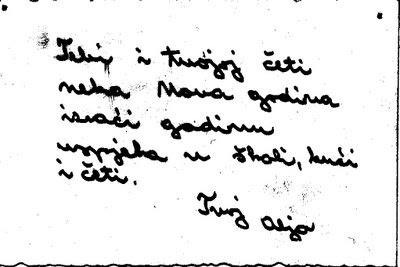 Tebi i tvojoj četi
neka Nova godina
izvaći godinu
uspjeha u školi, kući
i četi.
Tvoj Aljo